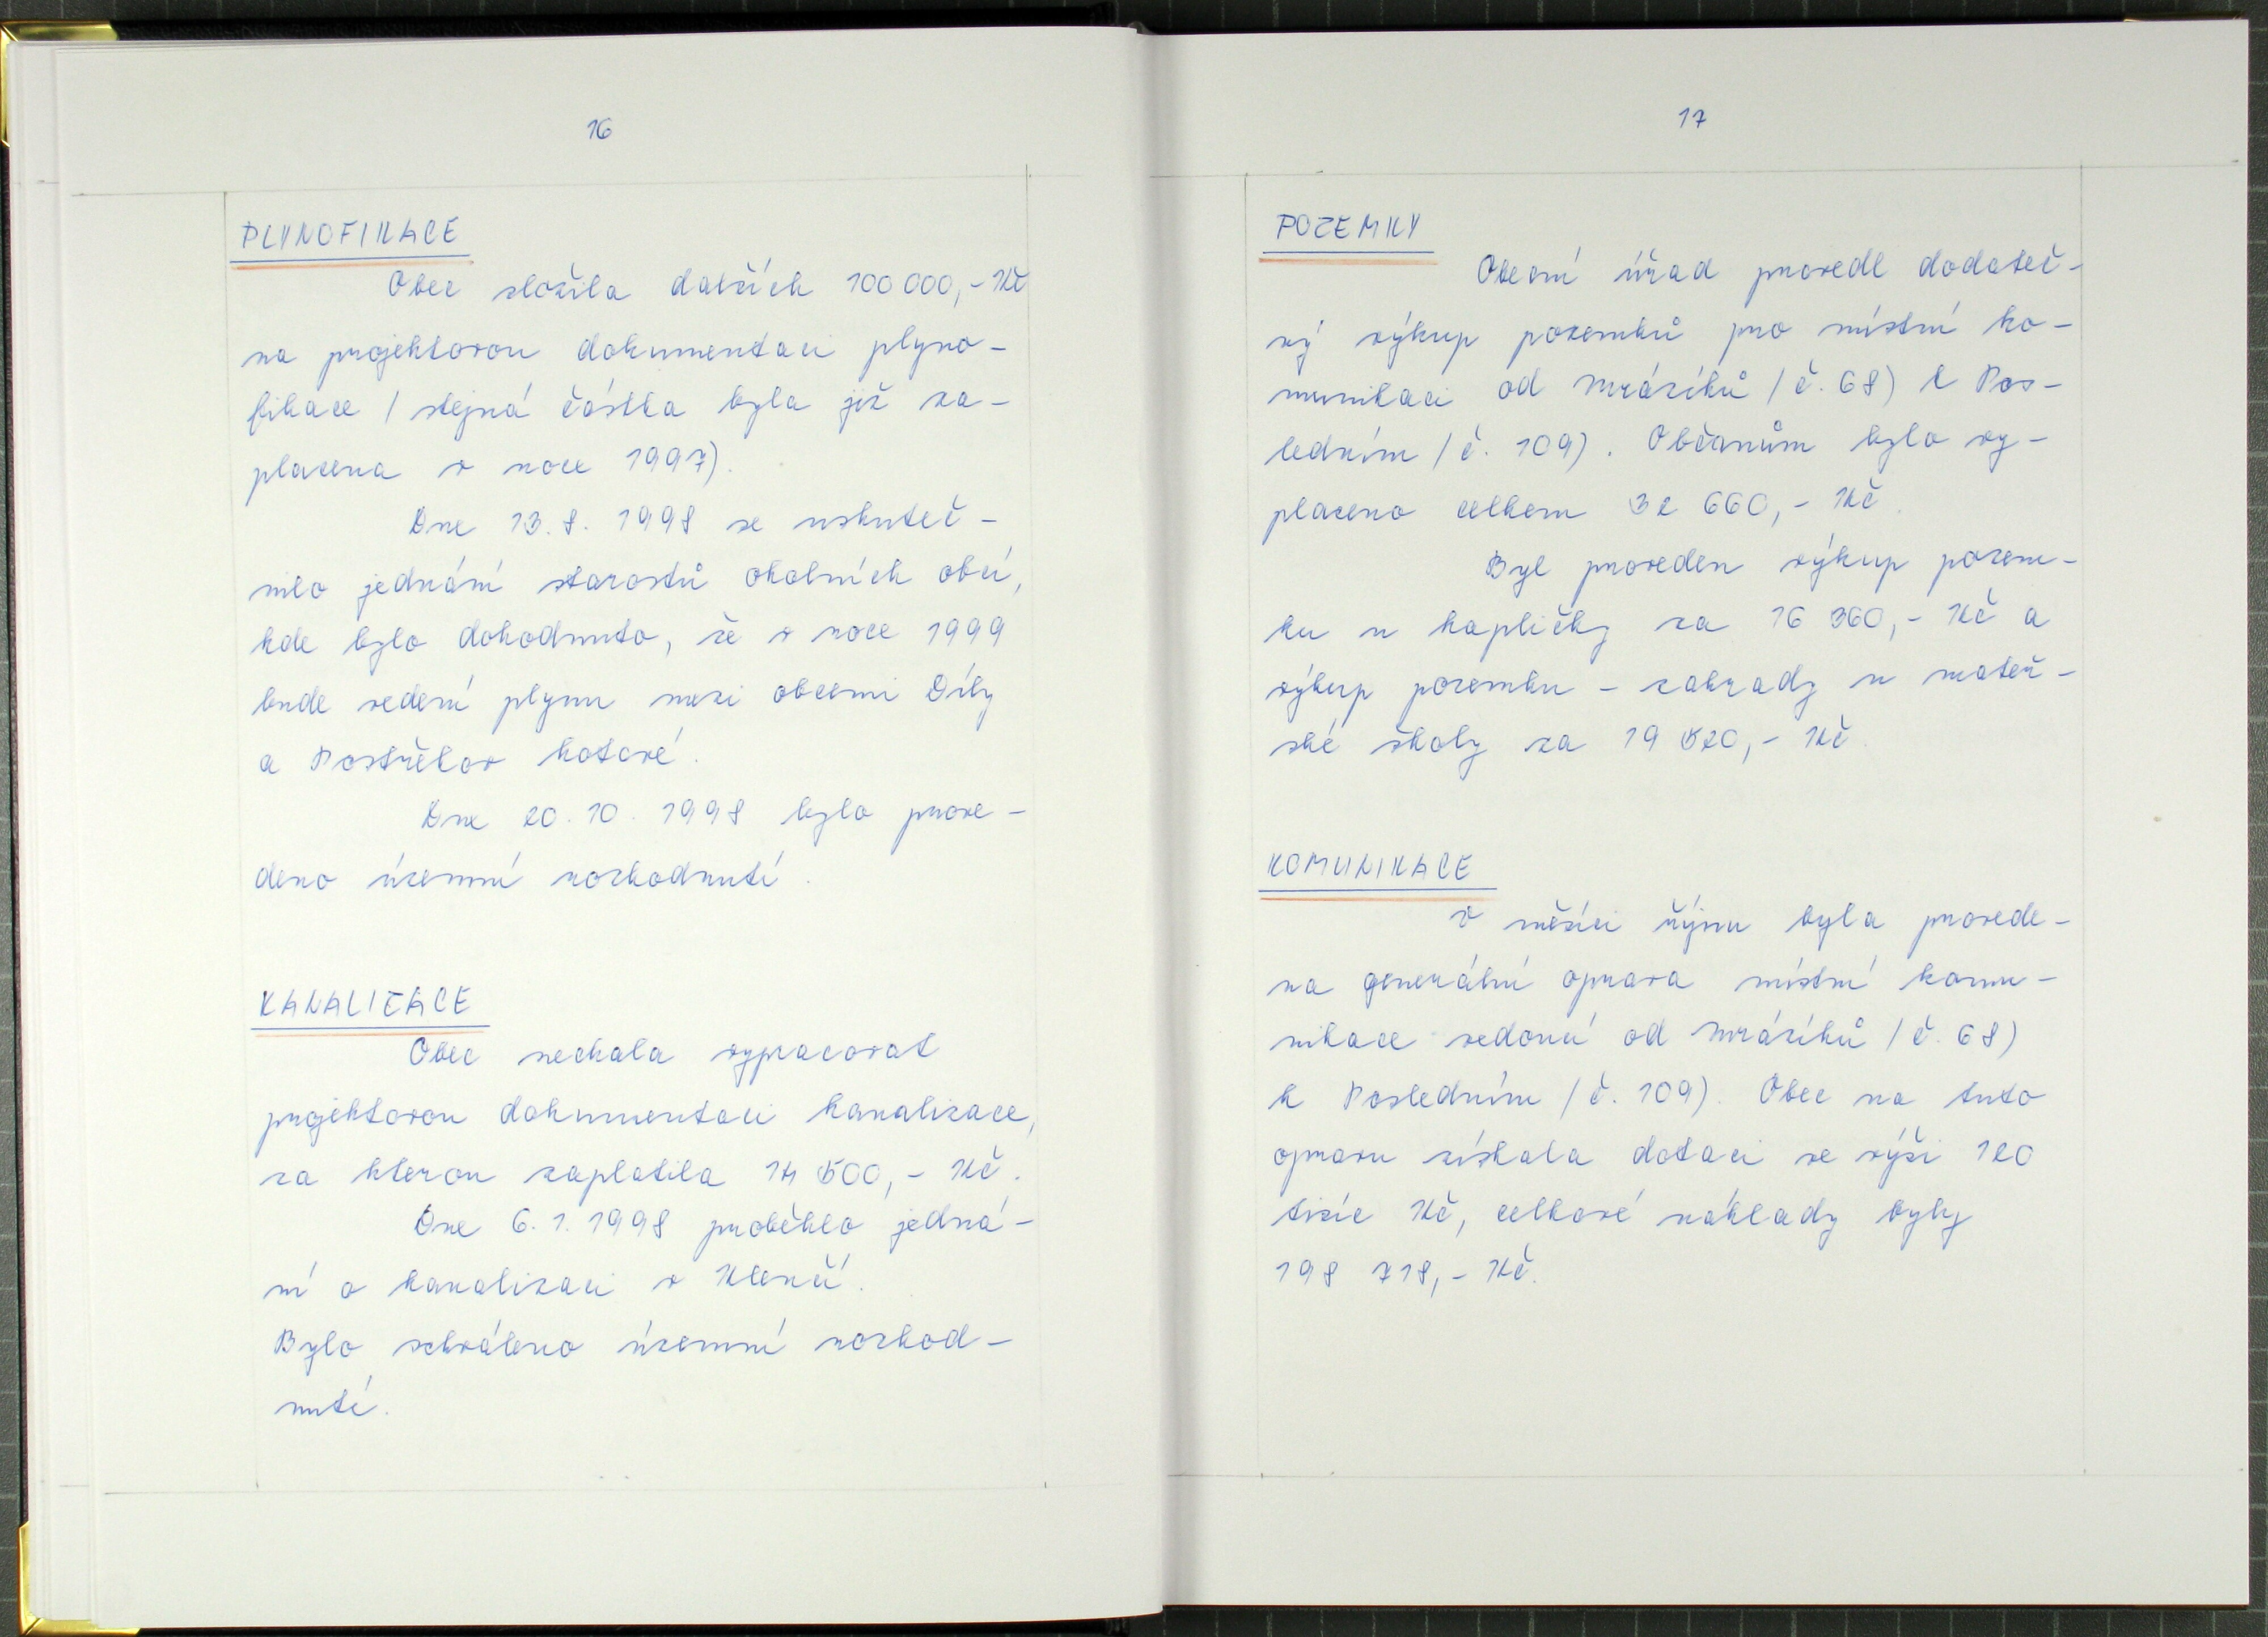 16
PLYNOFIKACE
Obec složila dalších 100 000,- Kč
na projektovou dokumentaci plyno-
fikace / stejná částka byla již za-
placena v roce 1997).
Dne 13. 8. 1998 se uskuteč-
nilo jednání starostů okolních obcí,
kde bylo dohodnuto, že v roce 1999
bude vedení plynu mezi obcemi Díly
a Postřekov hotové.
Dne 20. 10. 1998 bylo prove-
deno územní rozhodnutí.
KANALIZACE
Obec nechala vypracovat
projektovou dokumentaci kanalizace,
za kterou zaplatila 14 500,- Kč.
Dne 6. 1. 1998 proběhlo jedná-
ní o kanalizaci v Klenčí.
Bylo schváleno územní rozhod-
nutí.
17
POZEMKY
Obecní úřad provedl dodateč-
ný výkup pozemků pro místní ko-
munikaci od Mrázíků / č. 68) k Pos-
ledním / č. 109). Občanům bylo vy-
placeno celkem 32 660,- Kč.
Byl proveden výkup pozem-
ku u kapličky za 16 360,- Kč a
výkup pozemku - zahrady u mateř-
ské školy za 19 520,- Kč.
KOMUNIKACE
V měsíci říjnu byla provede-
na generální oprava místní komu-
nikace vedoucí od Mrázíků / č. 68)
k Posledním / č. 109). Obec na tuto
opravu získala dotaci ve výši 120
tisíc Kč, celkové náklady byly
198 718,- Kč.